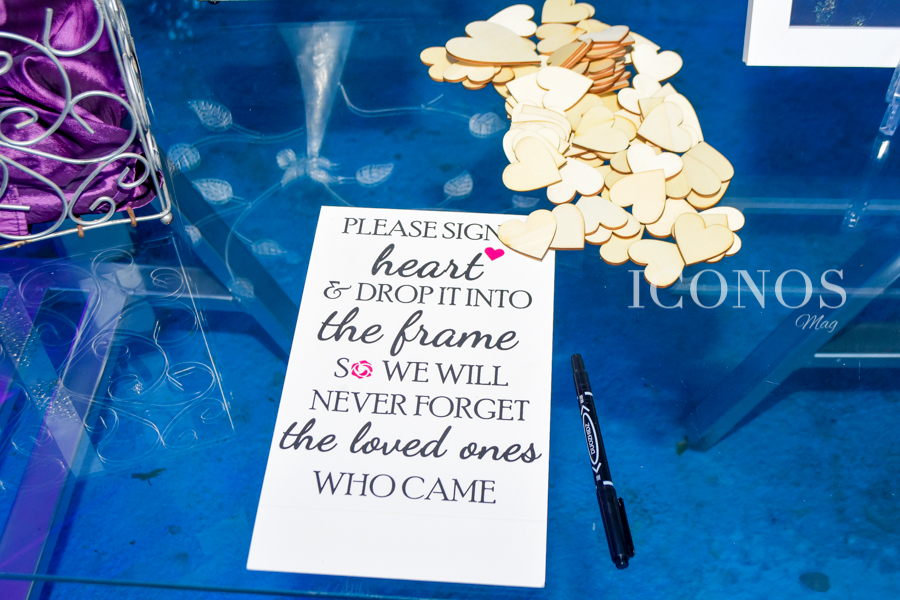 PLEASE SIGN
heart
& DROP IT INTO
the frame
SO WE WILL
NEVER FORGET
the loved ones
WHO CAME
ICONOS
Mag